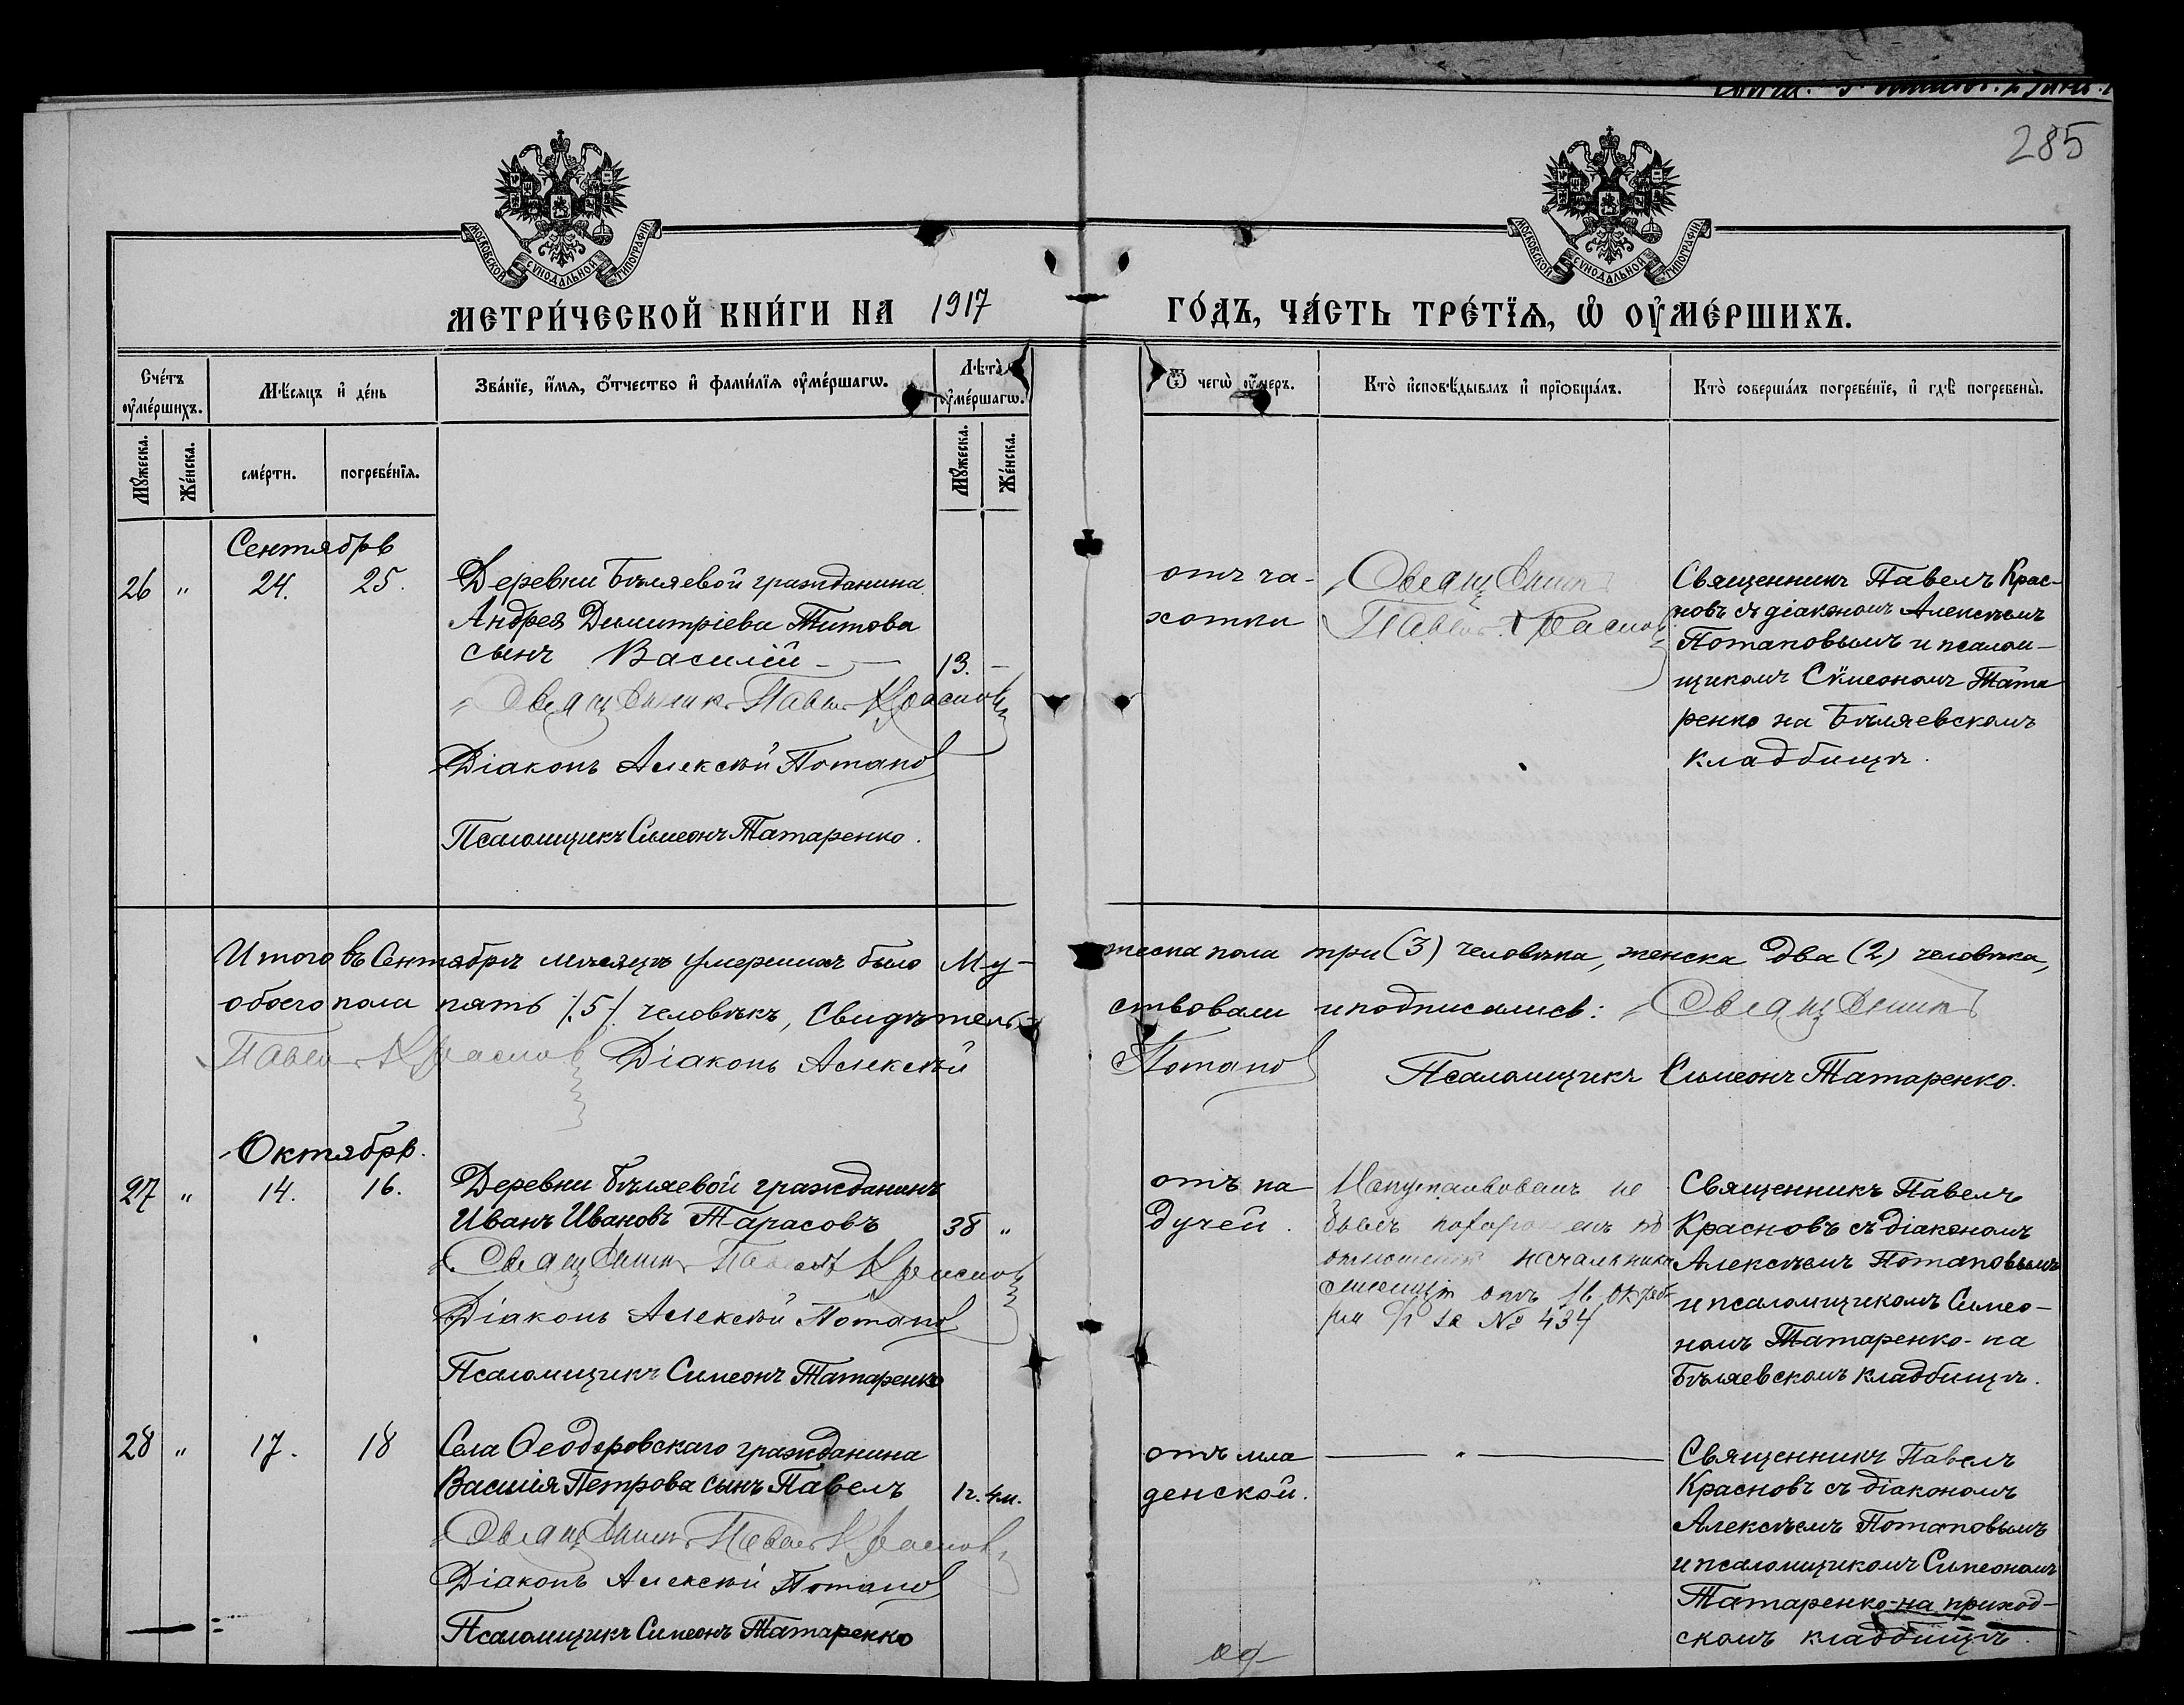 285
МОСКОВСКОЙ СѴНОДАЛЬНОЙ ТИПОГРАФІИ
МОСКОВСКОЙ СѴНОДАЛЬНОЙ ТИПОГРАФІИ
МЕТРИ́ЧЕСКОЙ КНИ́ГИ НА 1917 ГО́ДЪ, ЧА́СТЬ ТРЕ́ТЇѦ, Ѽ ОУ҆МЕ́РШИХЪ.
Сче́тъ оу҆ме́ршихъ.
Мꙋ́жеска.
Же́нска.
Мѣ́сѧцъ и҆ де́нь
сме́рти.
погребе́нїѧ.
Зва́нїе, и҆́мѧ, ѻ҆́тчество и҆ фами́лїѧ оу҆ме́ршагѡ.
Лѣ́та оу҆ме́ршагѡ.
Мꙋ́жеска.
Же́нска.
Ѿ чегѡ̀ оу҆́меръ.
Кто̀ и҆сповѣ́дывалъ и҆ прїѡбща́лъ.
Кто̀ соверша́лъ погребе́нїе, и҆ гдѣ̀ погребены̀.
Сентябрь
26 " 24. 25.
Деревни Бѣляевой гражданина
Андрея Димитріева Титова
сынъ Василій - — 13. -
Священникъ Павелъ Красновъ
Діаконъ Алексѣй Потапов
Псаломщикъ Симеонъ Татаренко.
отъ ча-
хотки
Священникъ
Павелъ Красновъ
Священникъ Павелъ Крас-
новъ съ діакономъ Алексѣемъ
Потаповымъ и псалом-
щикомъ Сѵмеономъ Тата
ренко на Бѣляевскомъ
кладбищѣ.
Итого въ Сентябрѣ мѣсяцѣ умершихъ было Му-
жеска пола три (3) человѣка, женска два (2) человѣка,
обоего пола пять /.5/. человѣкъ, Свидѣтель-
ствовали и подписались: Священникъ
Павелъ Красновъ Діаконъ Алексѣй
Потапов Псаломщикъ Симеонъ Татаренко.
Октябрь.
27 " 14. 16.
Деревни Бѣляевой гражданинъ
Иванъ Ивановъ Тарасовъ 38 "
Священникъ Павелъ Красновъ
Діаконъ Алексѣй Потапов
Псаломщикъ Симеонъ Татаренко
отъ па
дучей.
Напутствованъ не
былъ
начальника
отъ 16 октяб
за № 434
Священникъ Павелъ
Красновъ съ діакономъ
Алексѣемъ Потаповымъ
и псаломщикомъ Симео-
номъ Татаренко - на
Бѣляевскомъ кладбищѣ.
28 " 17. 18
Села Ѳеодоровскаго гражданина
Василія Петрова сынъ Павелъ 1г. 4м.
Священникъ Павелъ Красновъ
Діаконъ Алексѣй Потапов
Псаломщикъ Симеонъ Татаренко
отъ мла
денской.
— " —
Священникъ Павелъ
Красновъ съ діакономъ
Алексѣемъ Потаповымъ
и псаломщикомъ Симеономъ
Татаренко - на приход-
скомъ кладбищѣ.